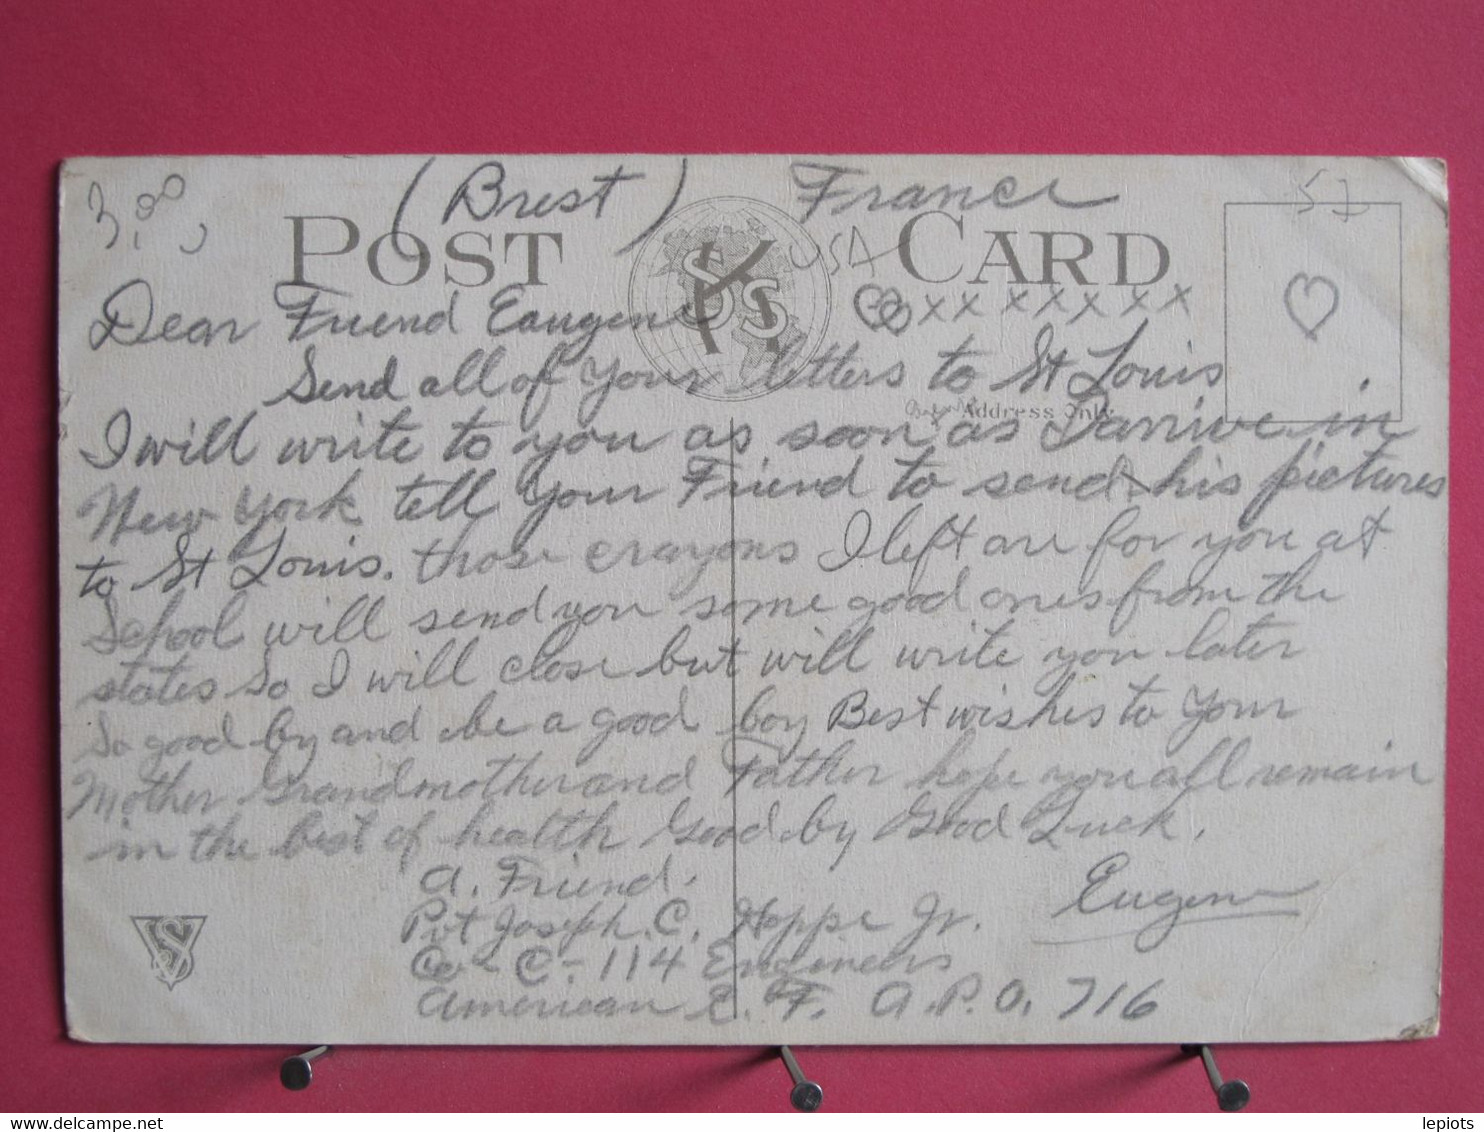 3.00
(Brest) France
57
POST CARD
SKSS
USA
Dear Friend Eaugene xxxxxxx
Send all of your letters to St Louis
Address Only
I will write to you as soon as I arrive in
New York tell your Friend to send his pictures
to St Louis. those crayons I left are for you at
School will send you some good ones from the
states So I will close but will write you later
So good-by and be a good boy Best wishes to your
Mother Grandmother and Father hope you all remain
in the best of health Good by Good Luck.
A. Friend.
Eugene
Pvt Joseph. C. Hoppe Jr.
Co - C - 114 Engineers
American E. F. A.P.O. 716
VS
www.delcampe.net
lepiots